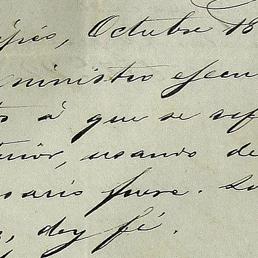 Octubre 18
ministro ejecu
à que se ref
terior, usando de
sario fuere. Lo
doy fé.